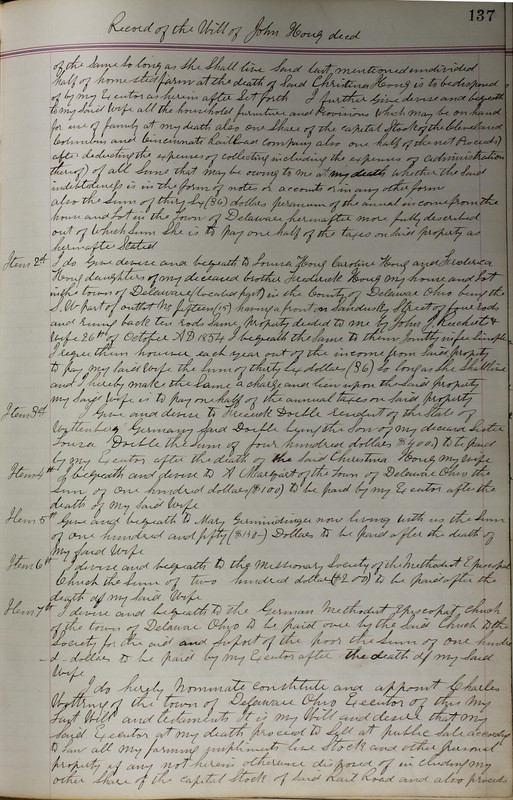 137
Record of the Will of John Hong decd
of the same so long as she Shall live Said last mentioned undivided
half of homested farm at the death of Said Christina Hong is to be disposed
of by my Executor as herein after Set forth I further Give devise and bequeath
to my Said Wife all the household furniture and Provisions which may be on hand
for use of family at my death also one Share of the capital Stock of the Cleveland
Columbus and Cincinnate Rail Road Company also one half of the net Proceeds
after deducting the expenses of collecting including the expenses of administration
therof) of all Sums that may be owing to me at my death whether the Said
indebtedness is in the form of notes or accounts or in any other form
also the Sum of thirty Six ($36) dollars per annum of the annual income from the
house and Lot in the Town of Delaware hereinafter more fully described
out of which Sum She is to pay one half of the taxes on Said property as
hereinafter Stated
Item 2d I do Give devise and bequeath to Louisa Hong Caroline Hong and Frederica
Hong daughters of my deceased brother Frederick Hong my house and Lot
in the town of Delaware (located part) in the County of Delaware Ohio being the
S. W part of outlot No fifteen (15) having a front on Sandusky Street of four rods
and runing back ten rods Same property deeded to me by John J. &
Wife 26th of October A D 1854 I bequeath the Same to them Jointly in fee Simple
I require them however each year out of the income from Said property
to pay my Said Wife the Sum of thirty Six dollars ($36) so long as She Shall live
and I hereby make the Same a charge and lien upon the Said property
my Said Wife is to pay one half of the annual taxes on Said property
Item 3d I Give and devise to Frederick Doible resident of the State of
Wurttenberg Germany Said Doible being the Son of my deceased Sister
Louisa Doible the Sum of four hundred dollars ($400) to be paid
by my Executor after the death of the Said Christina Hong my wife
Item 4th I bequeath and devise to A Marquart of the town of Delaware Ohio the
Sum of one hundred dollars ($100) to be paid by my Executor after the
death of my Said Wife
Item 5th Give and bequeath to Mary now living with us the Sum
of one hundred and fifty ($150-) Dollars to be paid after the death of
my Said Wife
Item 6th I devise and bequeath to the Missionary Society of the Methodist Episcopal
Chuch the Sum of two hundred dollars ($200) to be paid after the
death of my Said Wife
Item 7th I devise and bequeath to the German Methodist Episcopal Chuch
of the town of Delaware Ohio to be paid over by the Said Chuch to the
Society for the aid and Suport of the poor the Sum of one hundre
-d- dollars to be paid by my Executor after the death of my Said
Wife
I do hereby Nominate constitute and appoint Charles
of the town of Delaware Ohio Executor of this my
Last Will and testament It is my Will and desire that my
Said Executor at my death proceed to Sell at public Sale according
to Law all my farming impliments live Stock and other personal
property if any not herein otherwise disposed of including my
other Share of the capital Stock of Said Rail Road and also proceeds